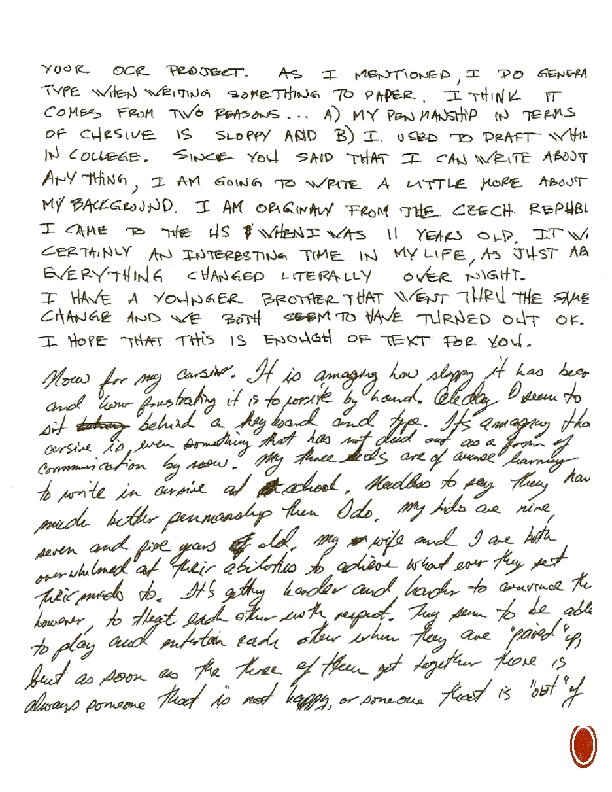 YOUR OCR PROJECT. AS I MENTIONED, I DO GENERA
TYPE WHEN WRITING SOMETHING TO PAPER. I THINK IT
COMES FROM TWO REASONS... A) MY PENMANSHIP IN TERMS
OF CURSIVE IS SLOPPY AND B) I USED TO DRAFT WHIL
IN COLLEGE. SINCE YOU SAID THAT I CAN WRITE ABOUT
ANYTHING, I AM GOING TO WRITE A LITTLE MORE ABOUT
MY BACKGROUND. I AM ORIGINALY FROM THE CZECH REPUBL
I CAME TO THE US WHEN I WAS 11 YEARS OLD. IT WA
CERTAINLY AN INTERESTING TIME IN MY LIFE, AS JUST AB
EVERYTHING CHANGED LITERALLY OVER NIGHT.
I HAVE A YOUNGER BROTHER THAT WENT THRU THE SAME
CHANGE AND WE BOTH SEEM TO HAVE TURNED OUT OK.
I HOPE THAT THIS IS ENOUGH OF TEXT FOR YOU.
Now for my cursive. It is amazing how sloppy it has beco
and how frustrating it is to write by hand. All day I seem to
sit behind a keyboard and type. It's amazing tha
cursive is even something that has not died out as a form of
communication by now. My three kids are of course learning
to write in cursive at school. Needless to say they hav
much better penmanship then I do. My kids are nine,
seven and five years old. My wife and I are both
overwhelmed at their abilities to achieve what ever they set
their minds to. It's getting harder and harder to convince the
however, to treat each other with respect. They seem to be able
to play and entertain each other when they are "paired" up,
but as soon as the three of them get together there is
always someone that is not happy, or someone that is "out" of